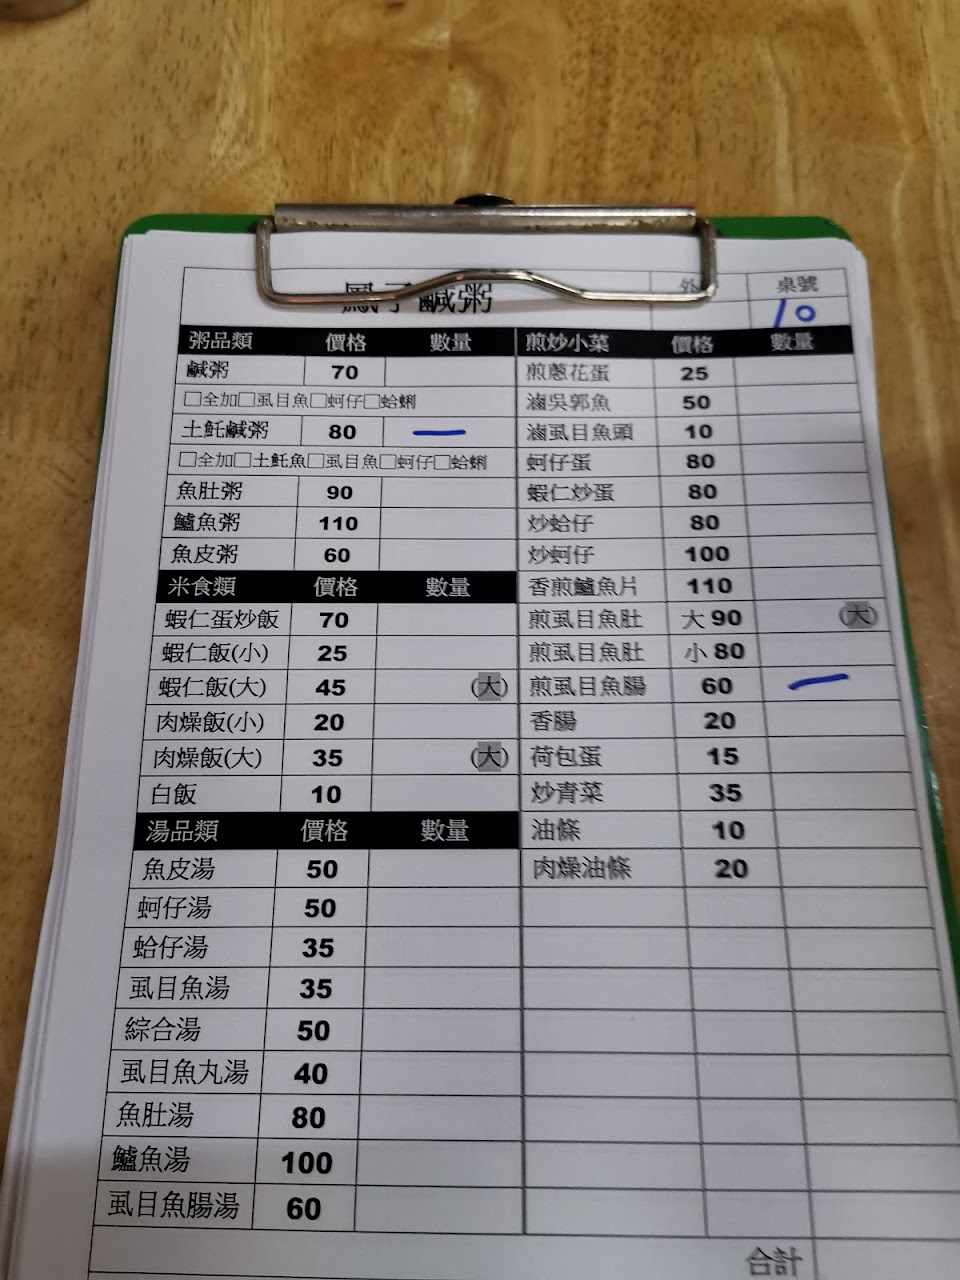 子鹹粥 外 桌號
10
粥品類 價格 數量
鹹粥 70
□全加□虱目魚□蚵仔□蛤蜊
土魠鹹粥 80 一
□全加□土魠魚□虱目魚□蚵仔□蛤蜊
魚肚粥 90
鱸魚粥 110
魚皮粥 60
米食類 價格 數量
蝦仁蛋炒飯 70
蝦仁飯(小) 25
蝦仁飯(大) 45 (大)
肉燥飯(小) 20
肉燥飯(大) 35 (大)
白飯 10
湯品類 價格 數量
魚皮湯 50
蚵仔湯 50
蛤仔湯 35
虱目魚湯 35
綜合湯 50
虱目魚丸湯 40
魚肚湯 80
鱸魚湯 100
虱目魚腸湯 60
煎炒小菜 價格 數量
煎蔥花蛋 25
滷吳郭魚 50
滷虱目魚頭 10
蚵仔蛋 80
蝦仁炒蛋 80
炒蛤仔 80
炒蚵仔 100
香煎鱸魚片 110
煎虱目魚肚 大 90 (大)
煎虱目魚肚 小 80
煎虱目魚腸 60 一
香腸 20
荷包蛋 15
炒青菜 35
油條 10
肉燥油條 20
合計